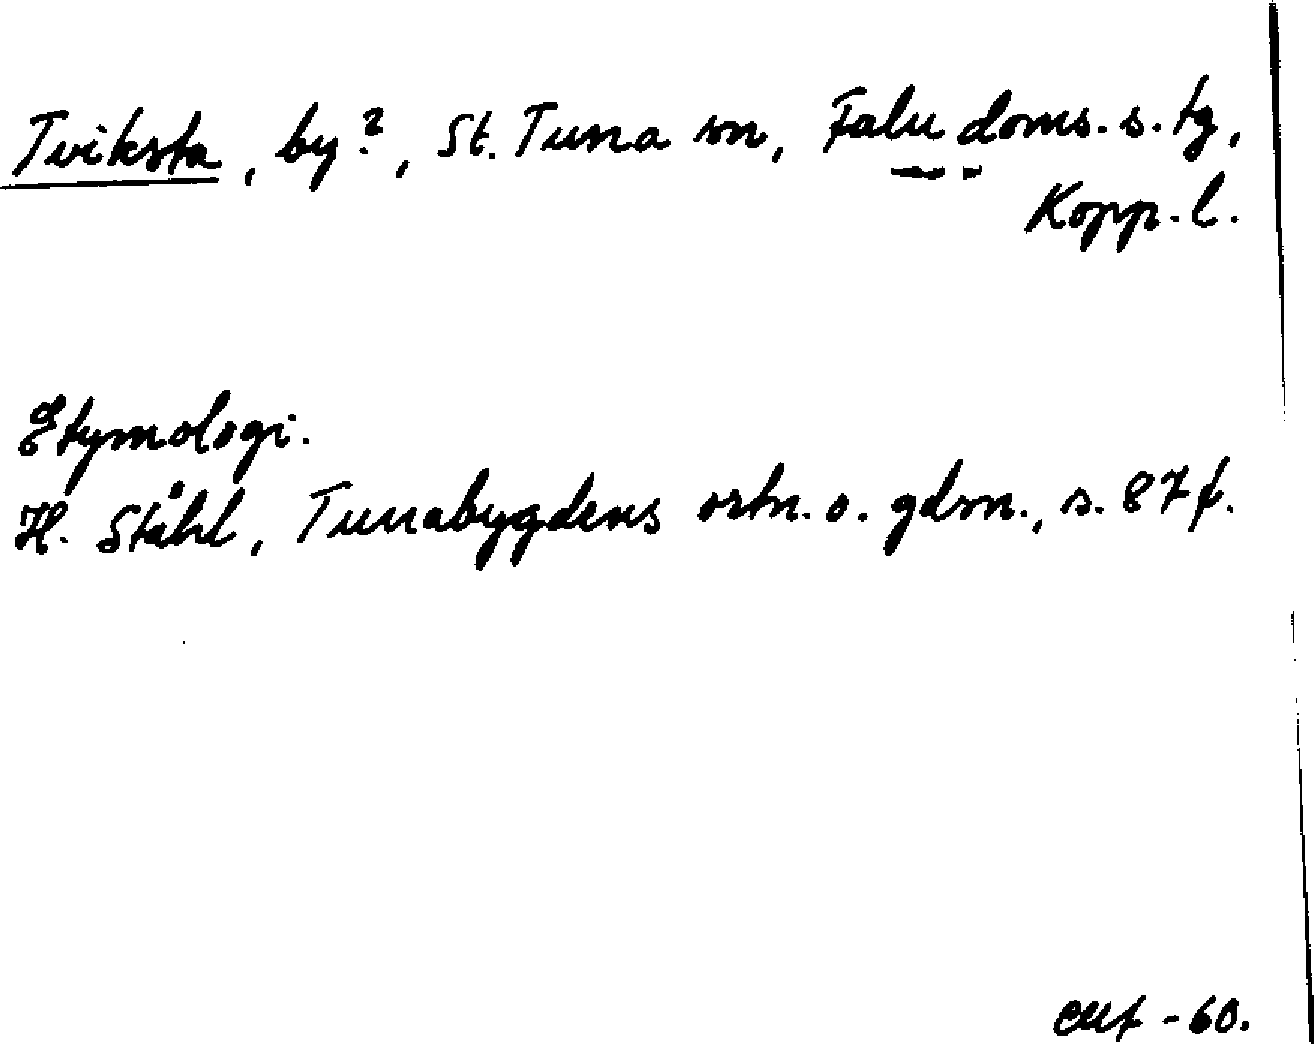 Tviksta, by?, St. Tuna sn, Falu doms. s. tg,
Kopp. l.
Etymologi.
H. Ståhl, Tunabygdens ortn. o. gdsn., s. 87 f.
-60.